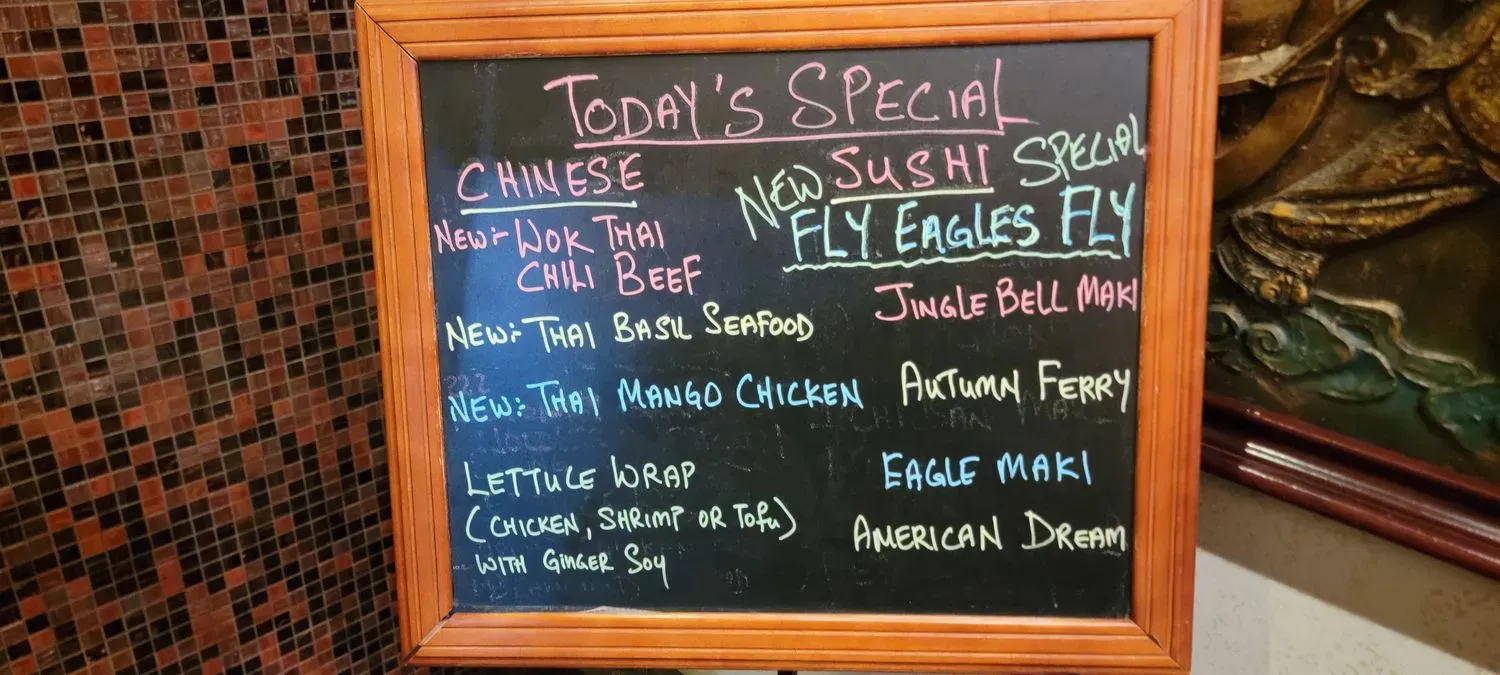 TODAY'S SPECIAL
CHINESE
NEW:- WOK THAI
CHILI BEEF
NEW:- THAI BASIL SEAFOOD
NEW:- THAI MANGO CHICKEN
LETTUCE WRAP
(CHICKEN, SHRIMP OR TOFU)
WITH GINGER SOY
NEW SUSHI SPECIAL
FLY EAGLES FLY
JINGLE BELL MAKI
AUTUMN FERRY
EAGLE MAKI
AMERICAN DREAM